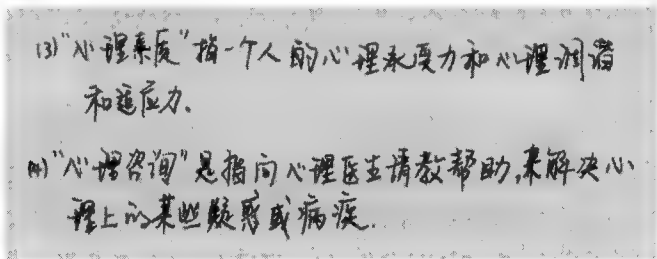 (3)"心理素质"指一个人的心理承受力和心理调谐
和适应力.
(4)"心理咨询"是指向心理医生请教帮助,来解决心
理上的某些疑惑或病疾.